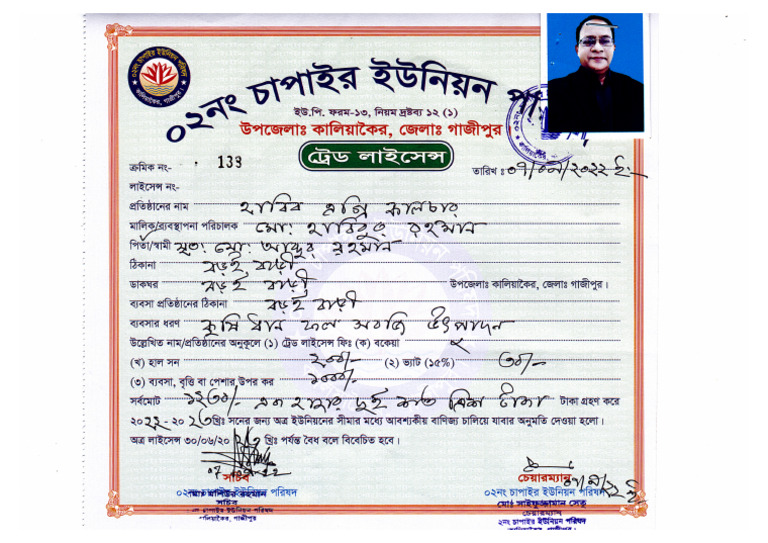 ০২নং চাপাইর ইউনিয়ন
ইউ.পি. ফরম-১৩, নিয়ম দ্রষ্টব্য ১২ (১)
উপজেলাঃ কালিয়াকৈর, জেলাঃ গাজীপুর।
ট্রেড লাইসেন্স
ক্রমিক নং- 138
তারিখ ঃ ০৭/ /২০২২ ইং
লাইসেন্স নং-
প্রতিষ্ঠানের নাম হাবিব এগ্রি কালচার
মালিক/ব্যবস্থাপনা পরিচালক মো: হাবিবুর রহমান
পিতা/স্বামী মৃত: মো: আব্দুর রহমান
ঠিকানা বড়ই বাড়ী
ডাকঘর বড়ই বাড়ী উপজেলাঃ কালিয়াকৈর, জেলাঃ গাজীপুর।
ব্যবসা প্রতিষ্ঠানের ঠিকানা বড়ই বাড়ী
ব্যবসার ধরণ কৃষি ধান ফল সবজি উৎপাদন
উল্লেখিত নাম/প্রতিষ্ঠানের অনুকূলে (১) ট্রেড লাইসেন্স ফিঃ (ক) বকেয়া
(খ) হাল সন ২০০/- (২) ভ্যাট (১৫%) ৩০/-
(৩) ব্যবসা, বৃত্তি বা পেশার উপর কর ১০০০/-
সর্বমোট ১২৩০/- এক হাজার দুই শত ত্রিশ টাকা টাকা গ্রহণ করে
২০২২-২০২৩ খ্রিঃ সনের জন্য অত্র ইউনিয়নের সীমার মধ্যে আবশ্যকীয় বাণিজ্য চালিয়ে যাবার অনুমতি দেওয়া হলো।
অত্র লাইসেন্স ৩০/০৬/২০২৩ খ্রিঃ পর্যন্ত বৈধ বলে বিবেচিত হবে।
সচিব
চেয়ারম্যান
০২নং চাপাইর ইউনিয়ন পরিষদ
০২নং চাপাইর ইউনিয়ন পরিষদ
সচিব
চাপাইর ইউনিয়ন পরিষদ
কালিয়াকৈর, গাজীপুর
মোঃ সাইফুজ্জামান সেতু
চেয়ারম্যান
২নং চাপাইর ইউনিয়ন পরিষদ